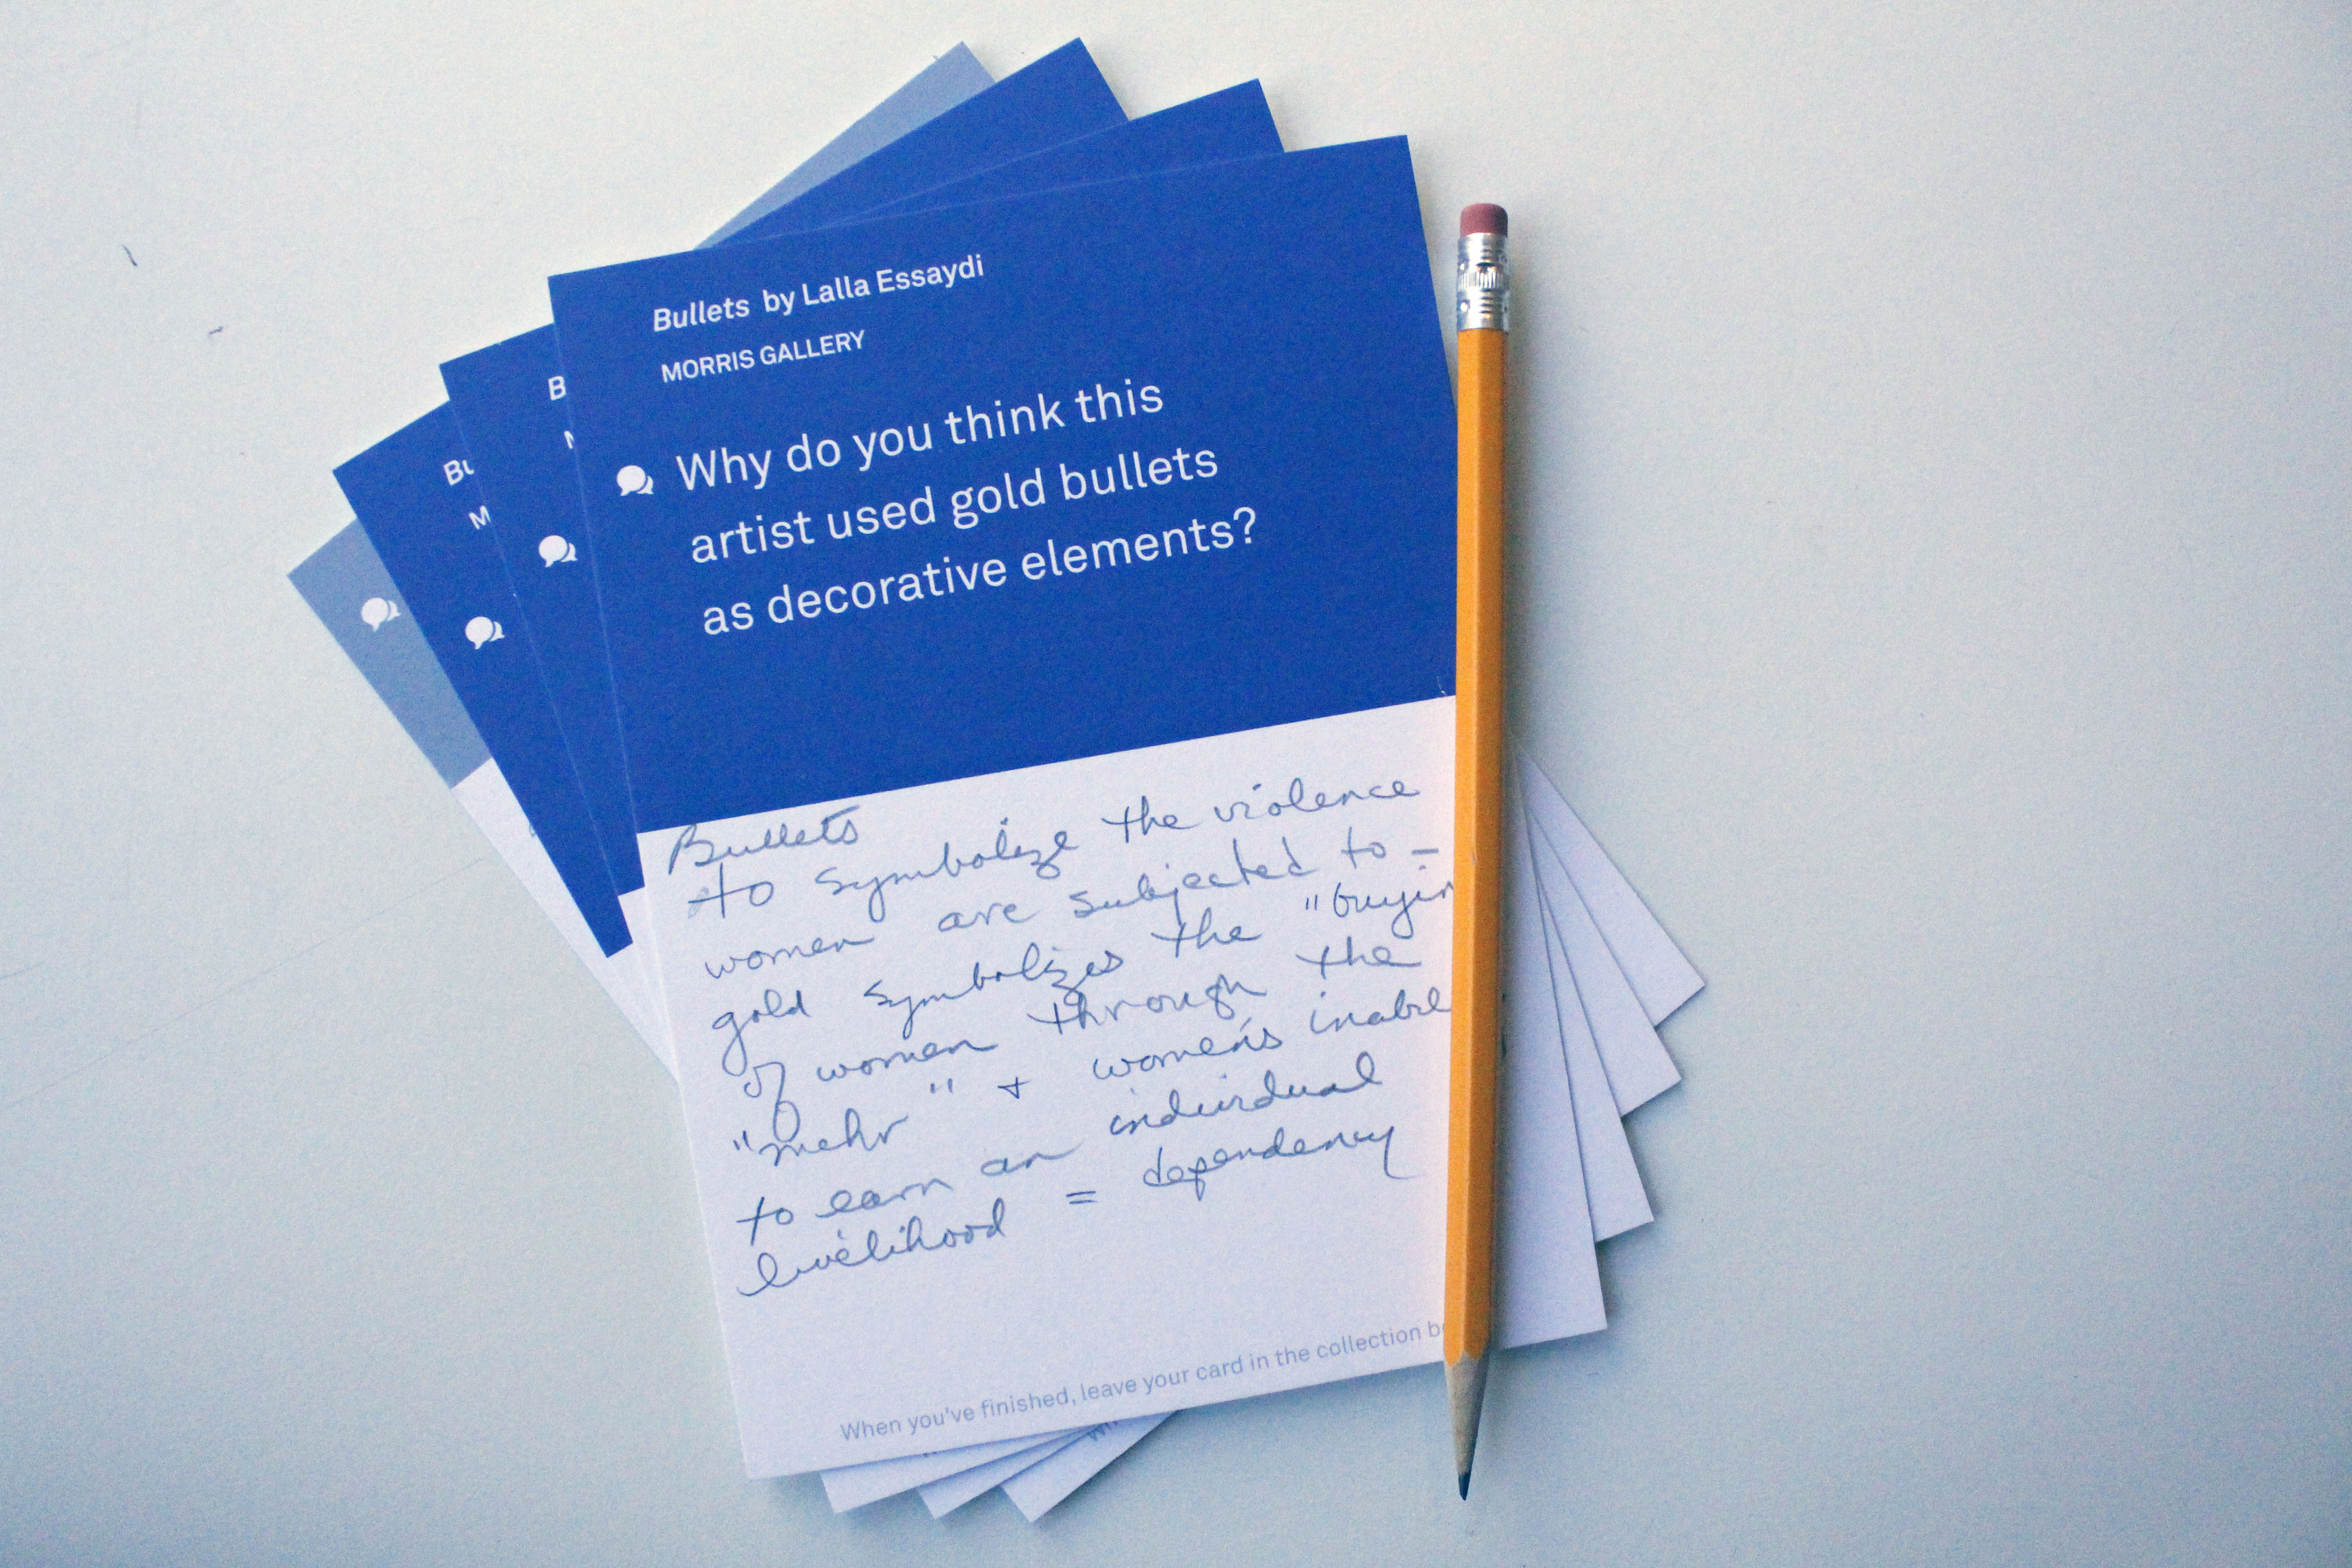 Bullets by Lalla Essaydi
MORRIS GALLERY
Why do you think this
artist used gold bullets
as decorative elements?
Bullets
to symbolize the violence
women are subjected to –
gold symbolizes the "buyin
of women through the
"mehr" + women's inabil
to earn an individual
livelihood = dependency
When you've finished, leave your card in the collection b
B
Bu
M